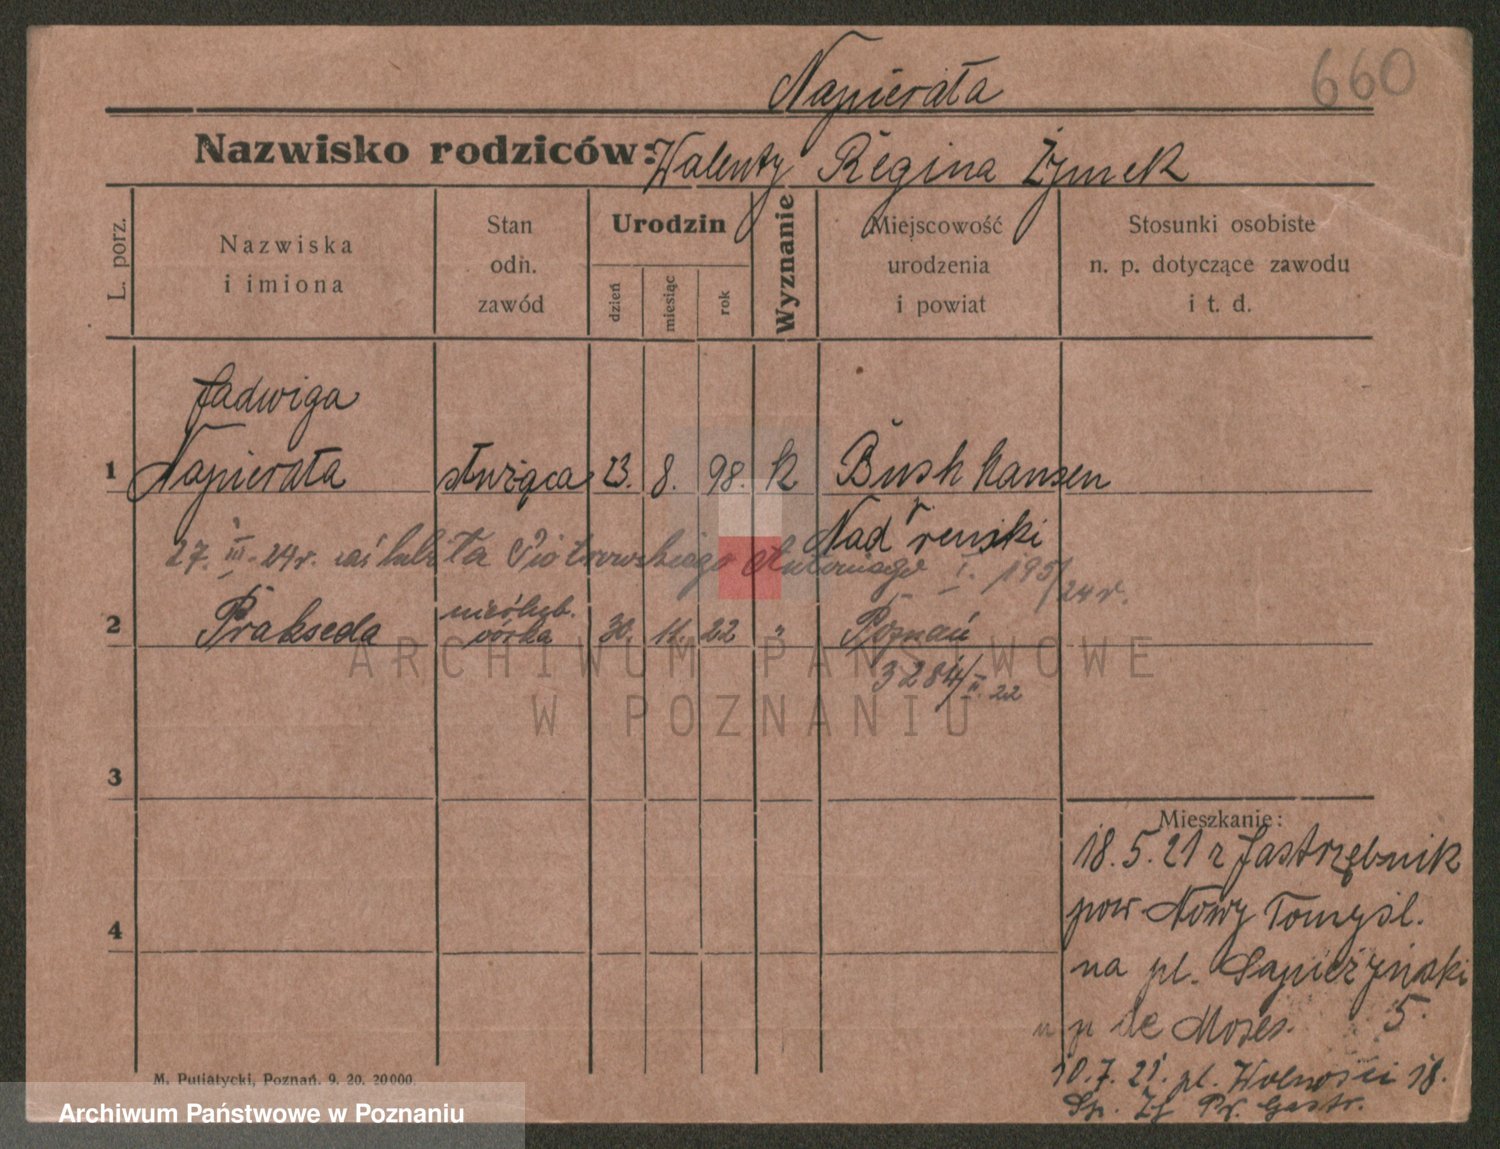 660
Napierała
Nazwisko rodziców: Walenty Regina Żymek
L. porz.
Nazwiska
i imiona
Stan
odn.
zawód
Urodzin
dzień
miesiąc
rok
Wyznanie
Miejscowość
urodzenia
i powiat
Stosunki osobiste
n. p. dotyczące zawodu
i t. d.
Jadwiga
1 Napierała służąca 23. 8. 98. k Bush hausen
Nad reński
27. III. 24r. Piotrowskiego Antoniego I. 195/24r.
2 Prakseda nieślub. córka 30. 11. 22 " Poznań
3284/II. 22
3
4
Mieszkanie:
18.5.21 z Jastrzębnik
pow Nowy Tomyśl.
na pl. Sapieżyński
5.
p de Moses.
10.7.21. pl. Wolności 18.
M. Putiatycki, Poznań. 9. 20. 20000.
ARCHIWUM PAŃSTWOWE
W POZNANIU
Archiwum Państwowe w Poznaniu